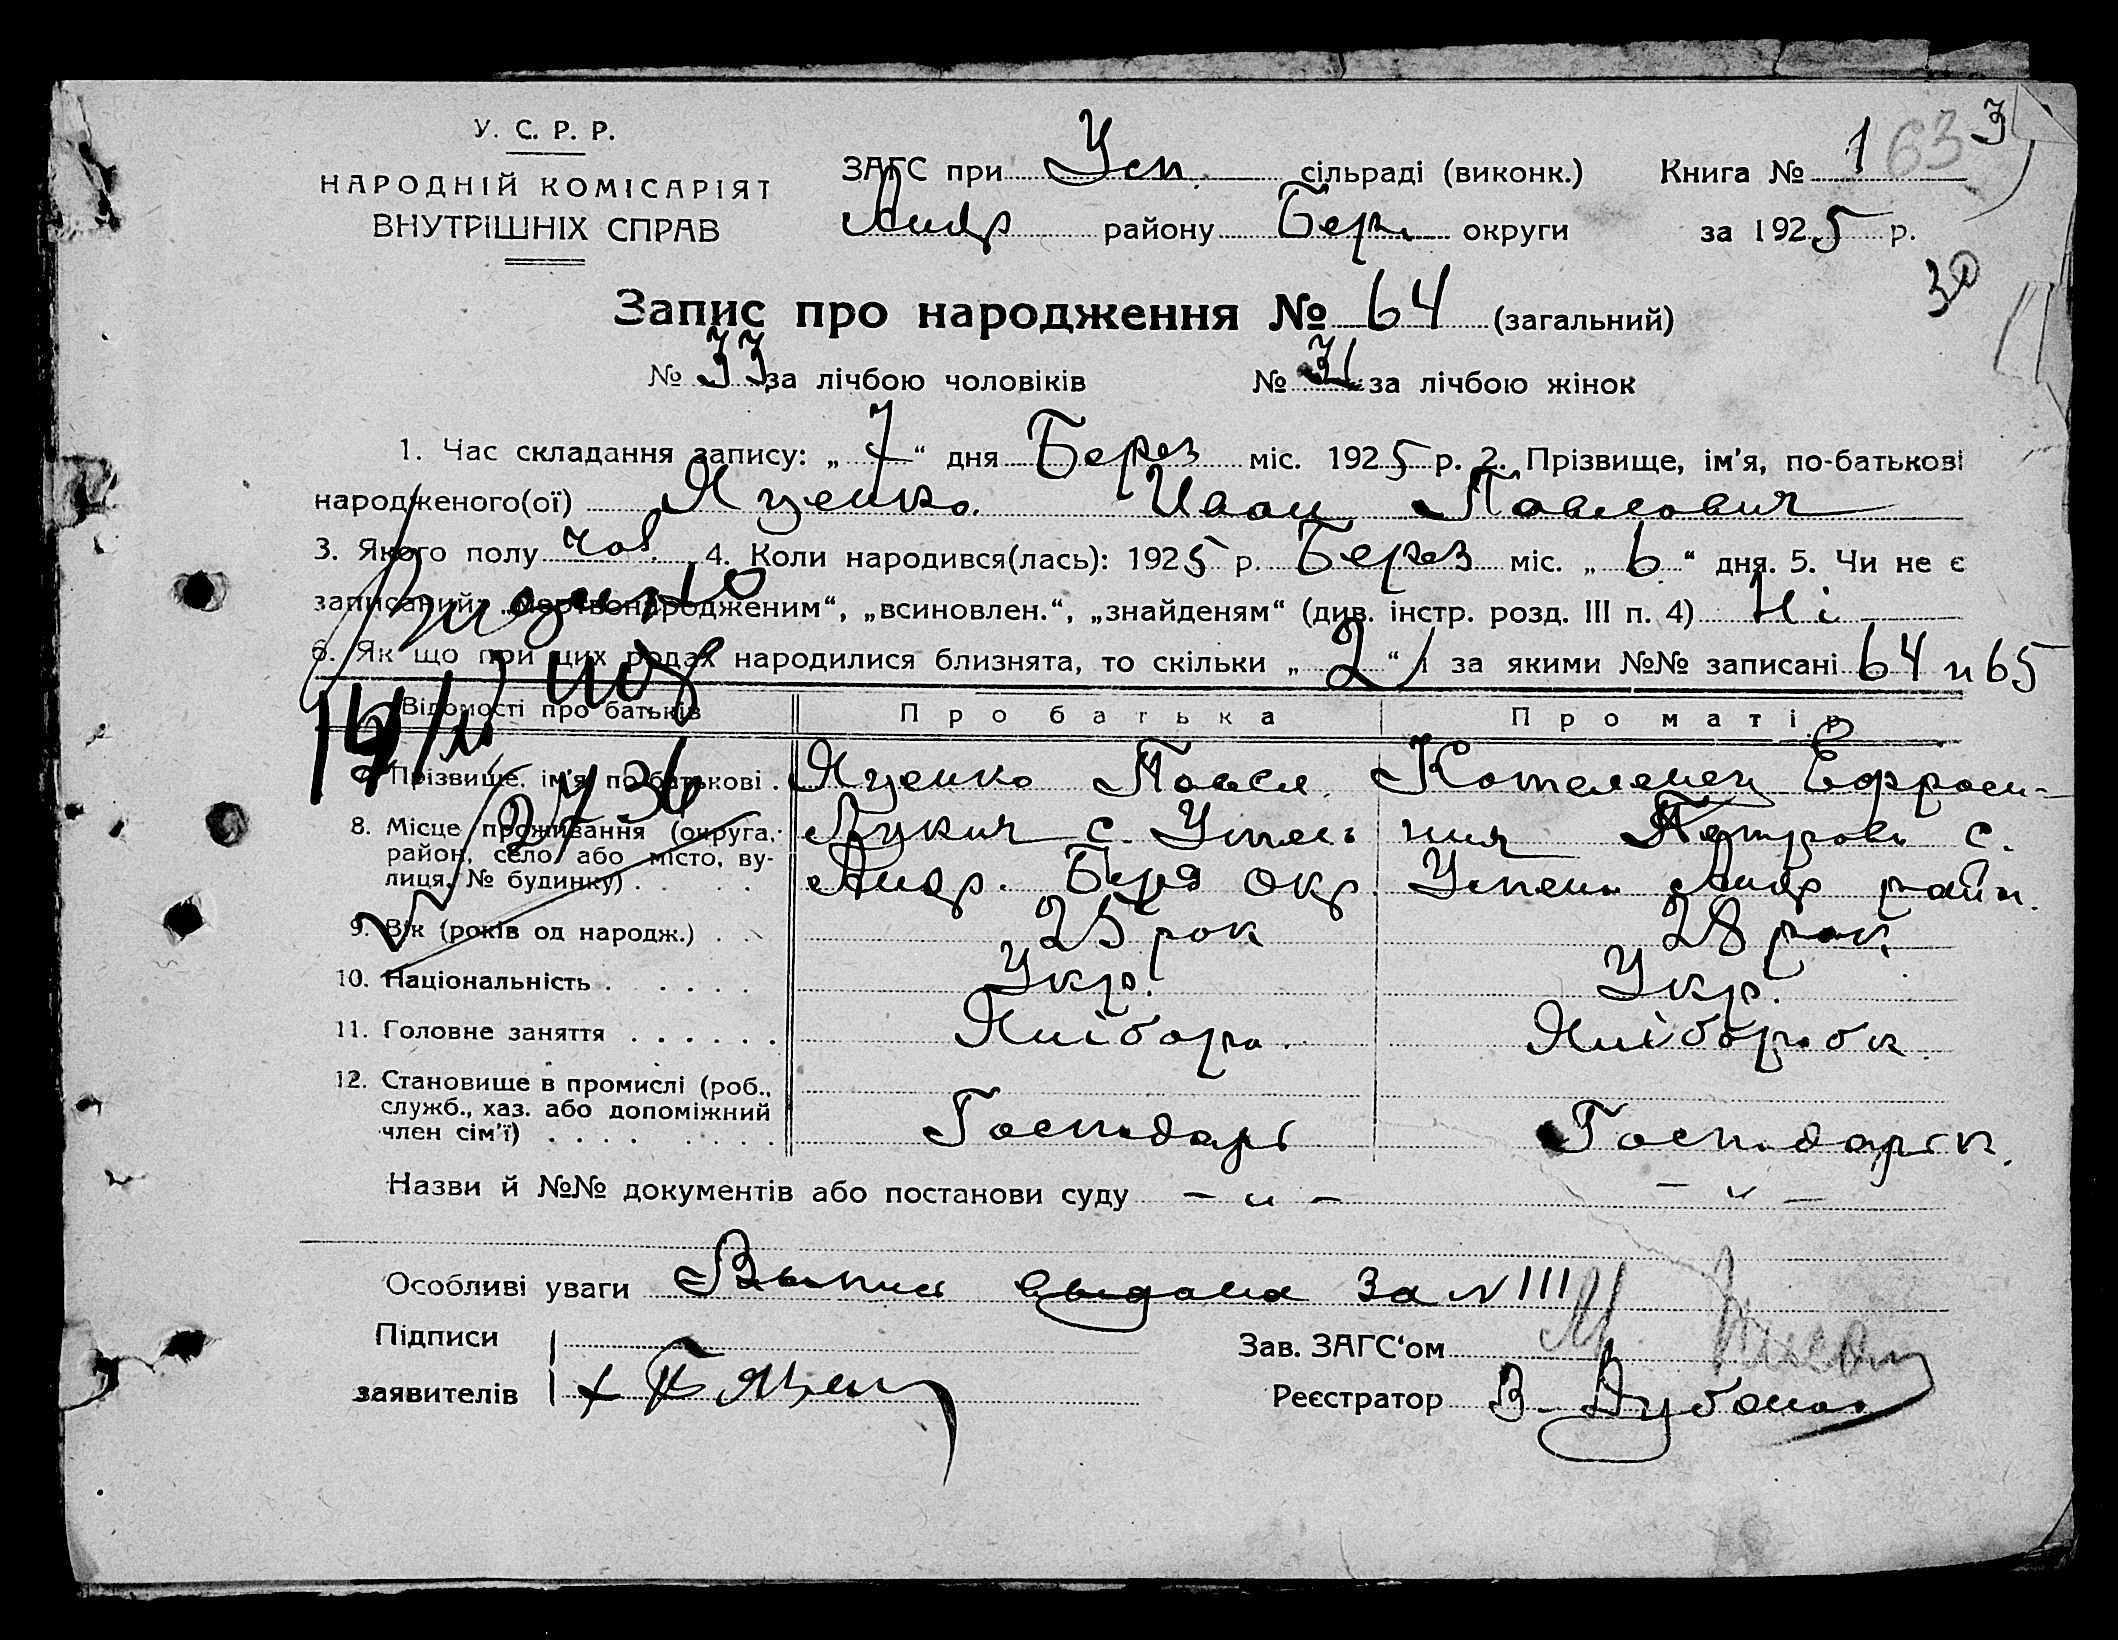 У. С. Р. Р.
НАРОДНІЙ КОМІСАРІЯТ
ВНУТРІШНІХ СПРАВ
ЗАГС при Усп. сільраді (виконк.) Книга № 1 63 3
Андр району Бер. округи за 1925 р.
30
Запис про народження № 64 (загальний)
№ 33 за лічбою чоловіків № 31 за лічбою жінок
1. Час складання запису: „7“ дня Берез міс. 1925 р. 2. Прізвище, ім'я, по-батькові
народженого(ої) Яценко Иван Павлович
3. Якого полу чов. 4. Коли народився(лась): 1925 р. Берез міс. „6“ дня. 5. Чи не є
записаний: „мертвонародженим“, „всиновлен.“, „знайденям“ (див. інстр. розд. III п. 4) Ні
6. Як що при цих родах народилися близнята, то скільки „2“ і за якими №№ записані 64 и 65
Відомості про батьків Про батька Про матір
7. Прізвище, ім'я, по-батькові . Яценко Павел Котеленец Ефроси-
8. Місце проживання (округа, Лукич с. Успень ния Петров с.
район, село або місто, ву- Андр. Берд окр. Успень Андр район.
лиця, № будинку) . . . .
9. Вік (років од народж.) . . 25 рок 28 рок
10. Національність . . . . . Укр. Укр.
11. Головне заняття . . . . . . Хлібороб. Хліборобк.
12. Становище в промислі (роб.,
служб., хаз. або допоміжний
член сім'ї) . . . . . . . . Господарь Господарьк.
Назви й №№ документів або постанови суду — „ — — „ —
Особливі уваги Выпись выдана за № 111
Підписи
Зав. ЗАГС‘ом М.
заявителів + П Яцен
Реєстратор В.